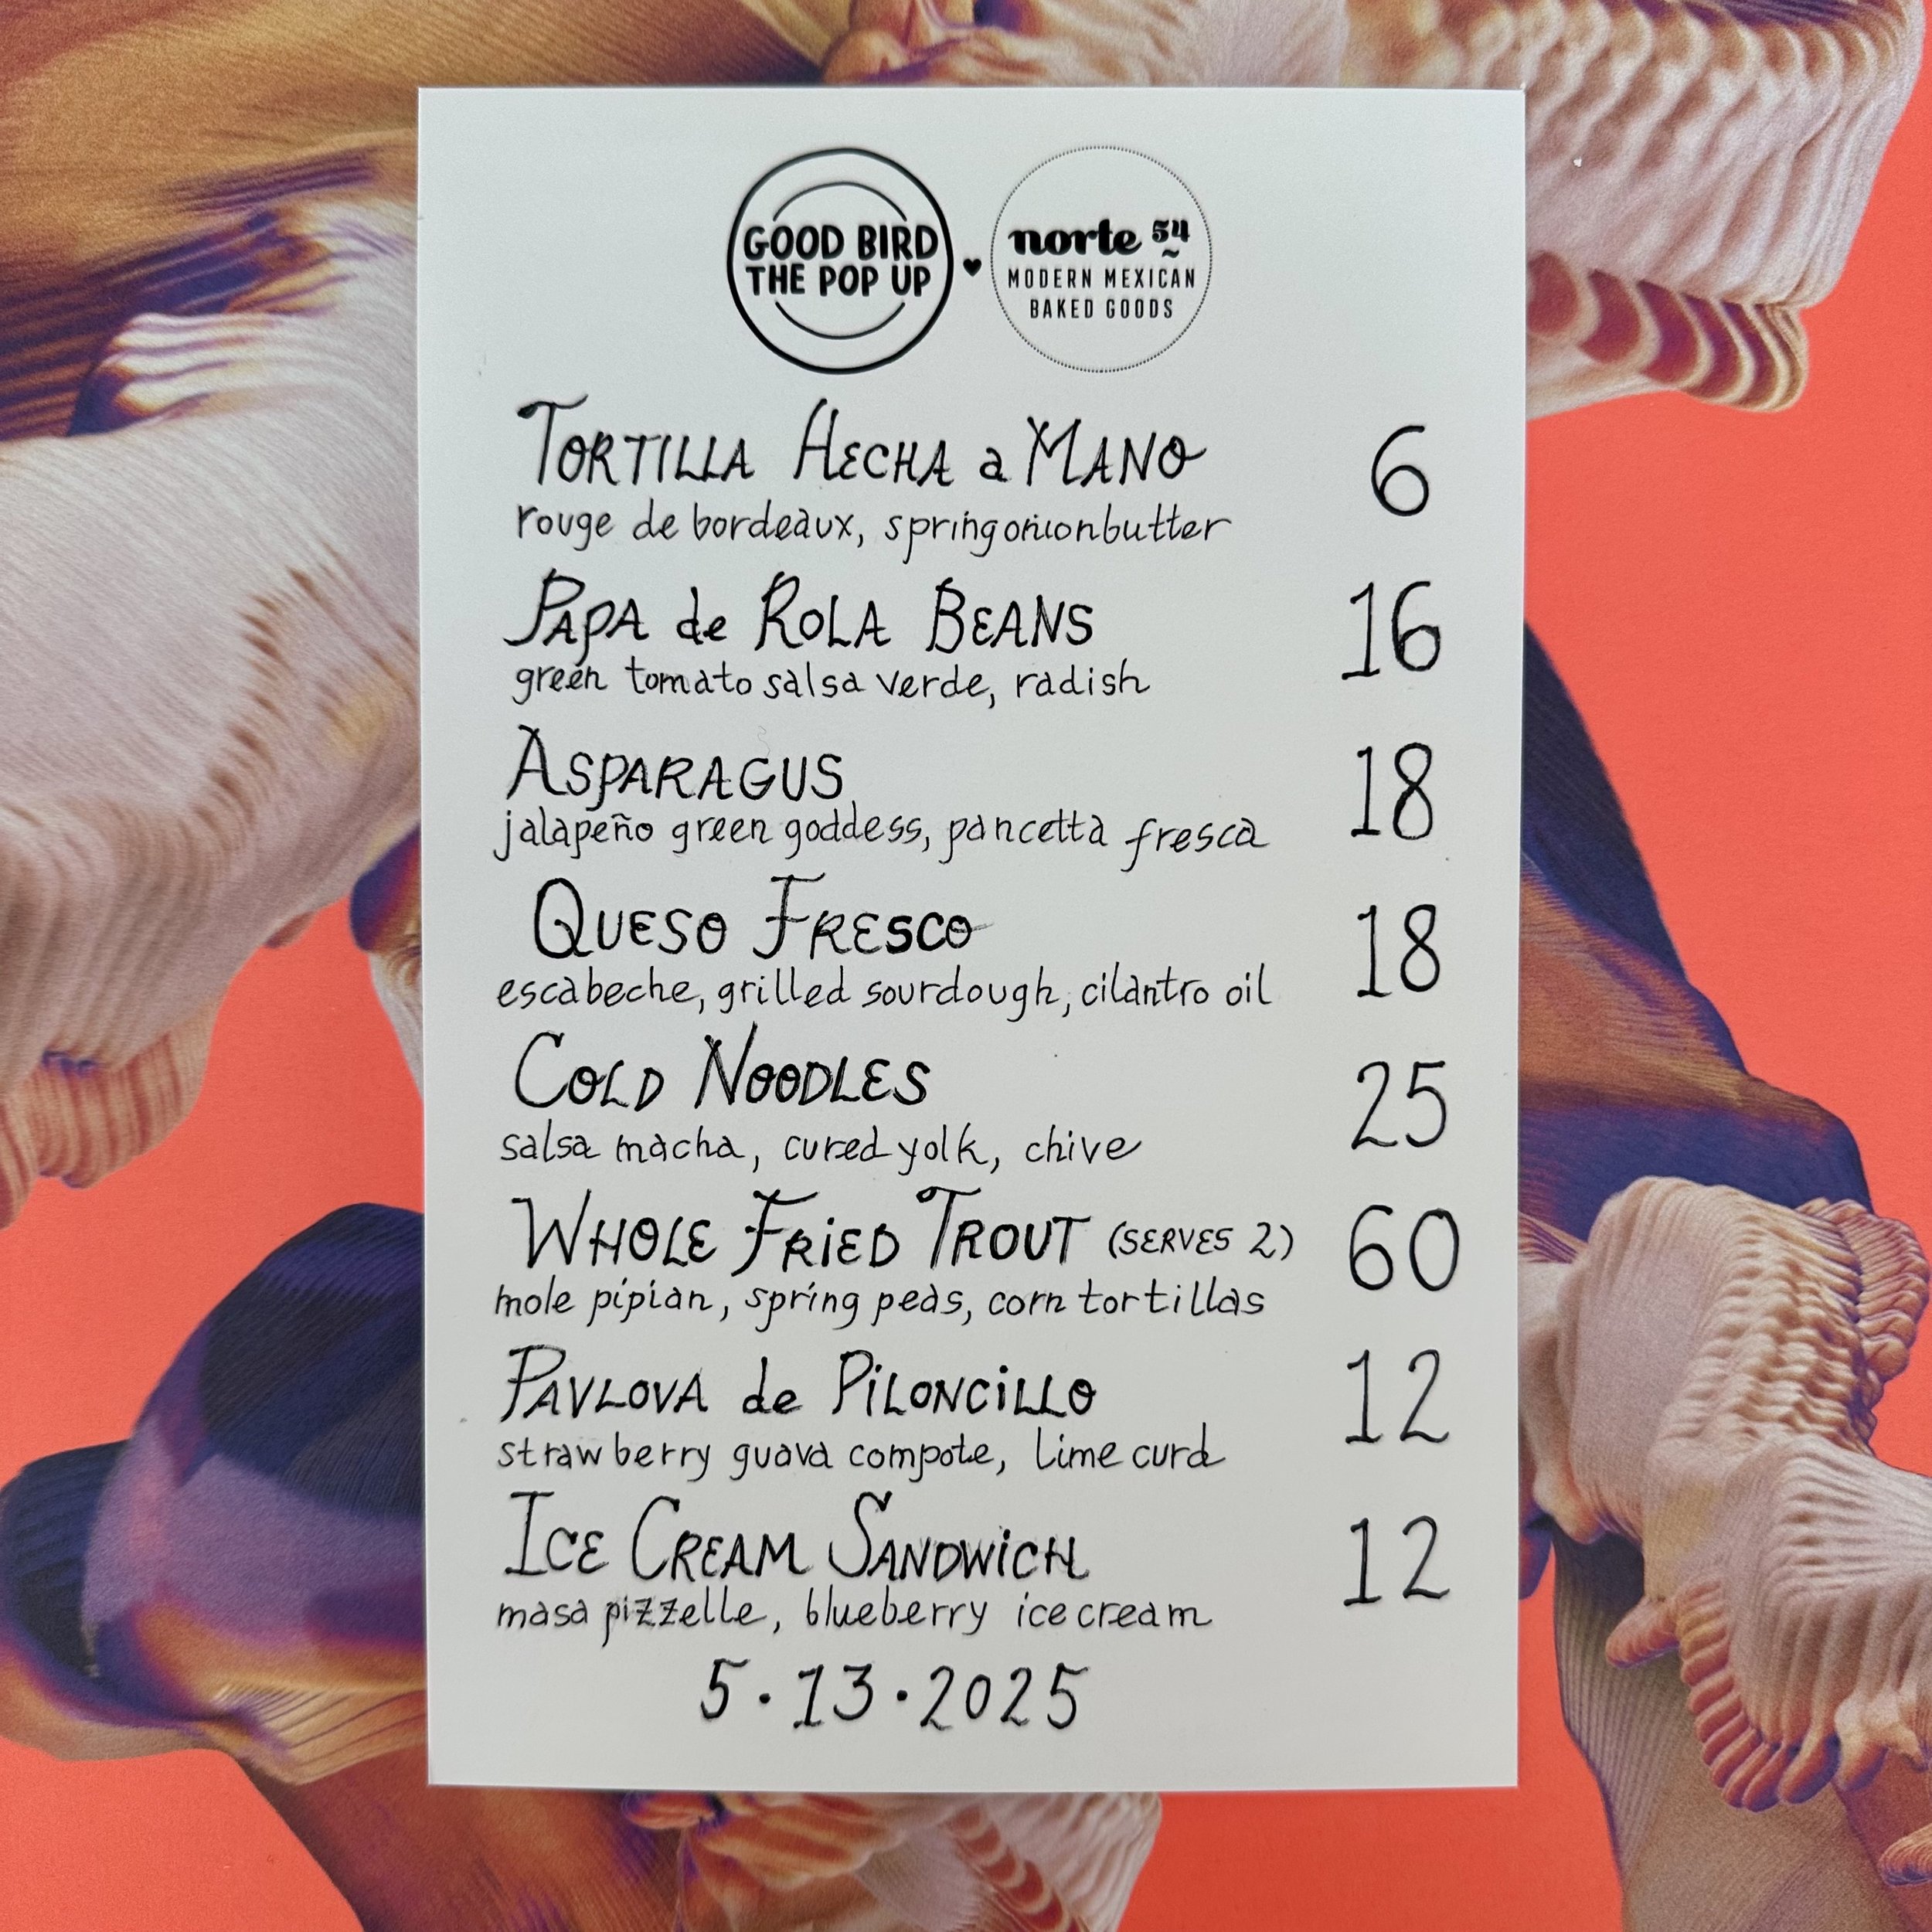 GOOD BIRD
THE POP UP
norte 54
MODERN MEXICAN
BAKED GOODS
TORTILLA HECHA a MANO 6
rouge de bordeaux, spring onion butter
PAPA de ROLA BEANS 16
green tomato salsa verde, radish
ASPARAGUS 18
jalapeño green goddess, pancetta fresca
QUESO FRESCO 18
escabeche, grilled sourdough, cilantro oil
COLD NOODLES 25
salsa macha, cured yolk, chive
WHOLE FRIED TROUT (SERVES 2) 60
mole pipian, spring peas, corn tortillas
PAVLOVA de PILONCILLO 12
strawberry guava compote, lime curd
ICE CREAM SANDWICH 12
masa pizzelle, blueberry ice cream
5·13·2025